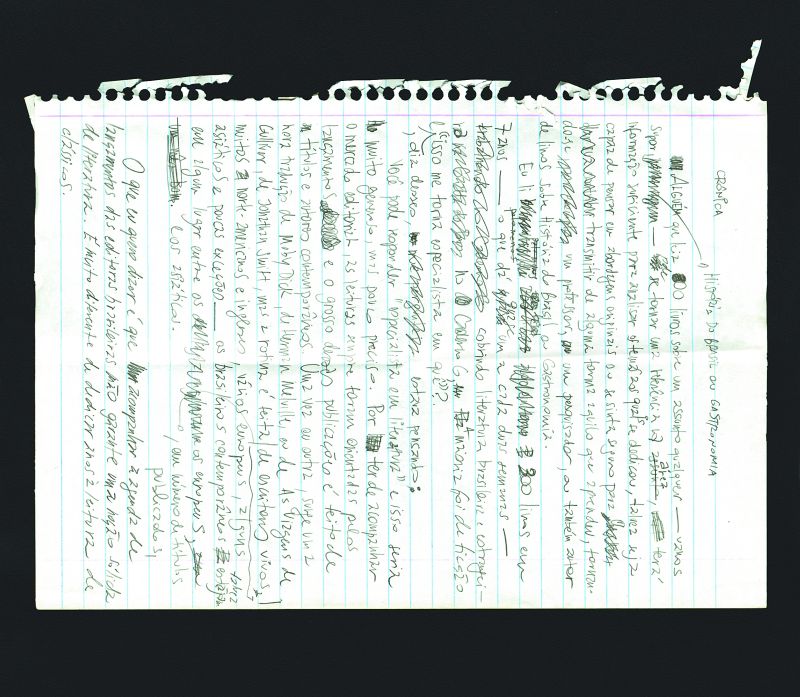 CRÔNICA
HISTÓRIA DO BRASIL OU GASTRONOMIA
ALGUÉM que lê 300 livros sobre um assunto qualquer — vamos
supor — se tornar uma referência na área terá
informação suficiente para analisar o tema ao qual se dedicou, talvez seja
capaz de pensar em abordagens originais ou se sinta seguro para
transmitir de alguma forma aquilo que aprendeu, tornan-
do-se um professor, um pesquisador, ou também autor
de livros sobre História do Brasil ou Gastronomia.
Eu li 300 livros em
7 anos — o que dá quase um a cada duas semanas —
cobrindo literatura brasileira e estrangei-
ra no Caderno G, a maioria foi de ficção
e isso me torna especialista em quê?,
diz
estava pensando:
Você pode responder "especialista em literatura" e isso seria
muito generoso, mas pouco preciso. Por ter de acompanhar
o mercado editorial, as leituras sempre foram orientadas pelos
lançamentos e o grosso dessas publicações é feito de
títulos e autores contemporâneos. Uma vez ou outra, surge uma
nova tradução de Moby Dick, de Herman Melville ou de As Viagens de
Gulliver, de Jonathan Swift, mas a rotina é feita de escritores vivos,
muitos norte-americanos e ingleses, vários europeus, alguns
asiáticos e poucas exceção — os brasileiros contemporâneos talvez estejam
em algum lugar entre os europeus
e os asiáticos, em número de títulos
publicados.
O que eu quero dizer é que acompanhar a agenda de
lançamentos das editoras brasileiras não garante uma noção sólida
de literatura. É muito diferente de dedicar anos à leitura de
clássicos.